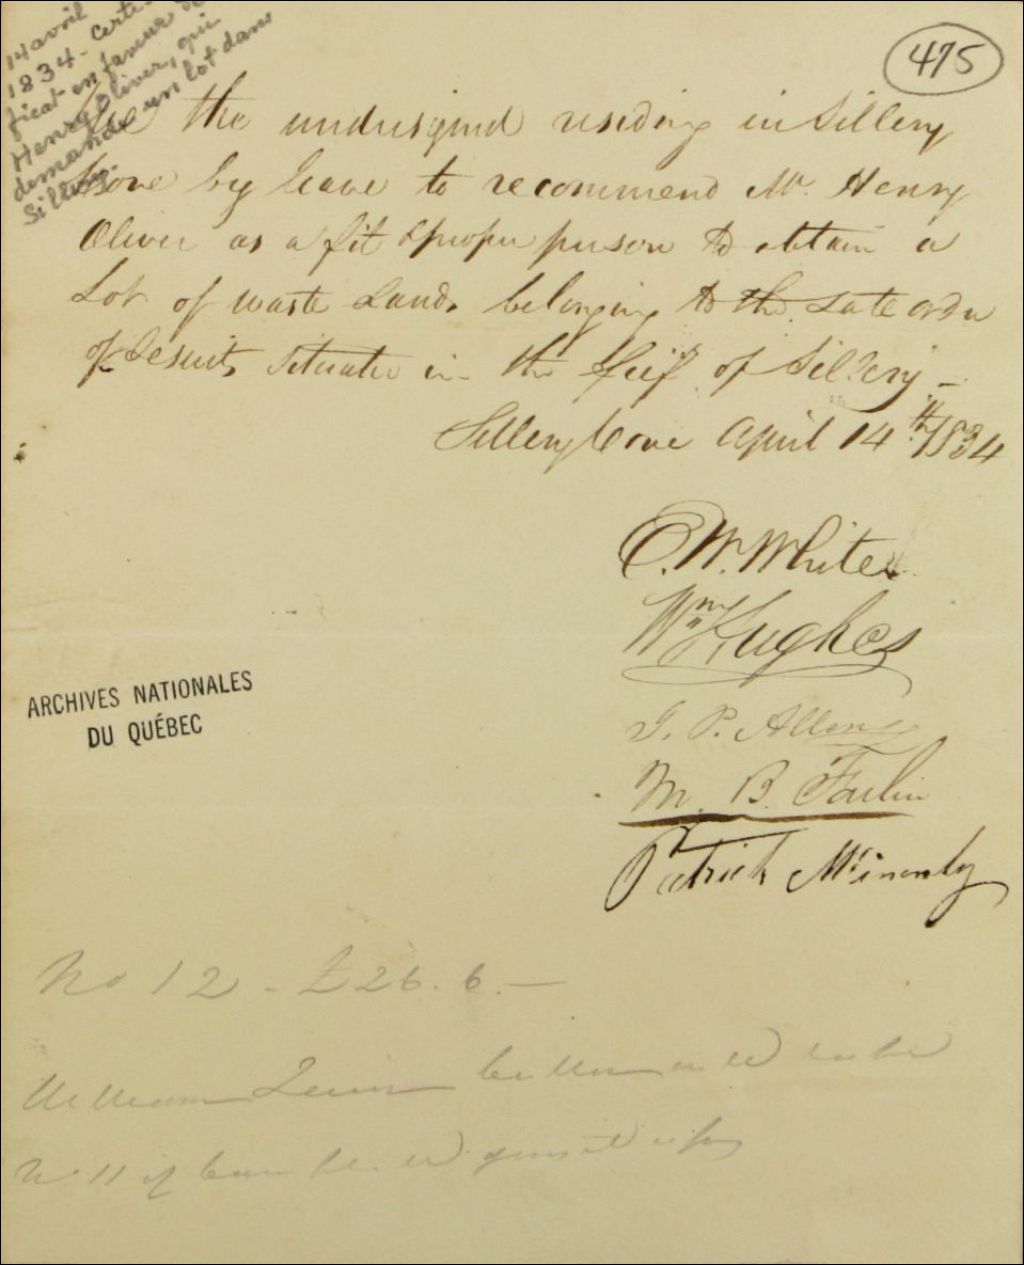 14 avril
1834 - Certi
ficat en faveur de
Henry Oliver, qui
demande un lot dans
Sillery.
475
We the undersigned residing in Sillery
Cove by leave to recommend Mr. Henry
Oliver as a fit & proper person to obtain a
Lot of waste Lands belonging to the Late order
of Jesuits situate in the fief of Sillery -
Sillery Cove April 14th 1834
C. W. White
Wm Hughes
J. P. Allen
M. B. Farlin
Patrick
ARCHIVES NATIONALES
DU QUÉBEC
No 12 - £26. 6. -
William
No 11 if